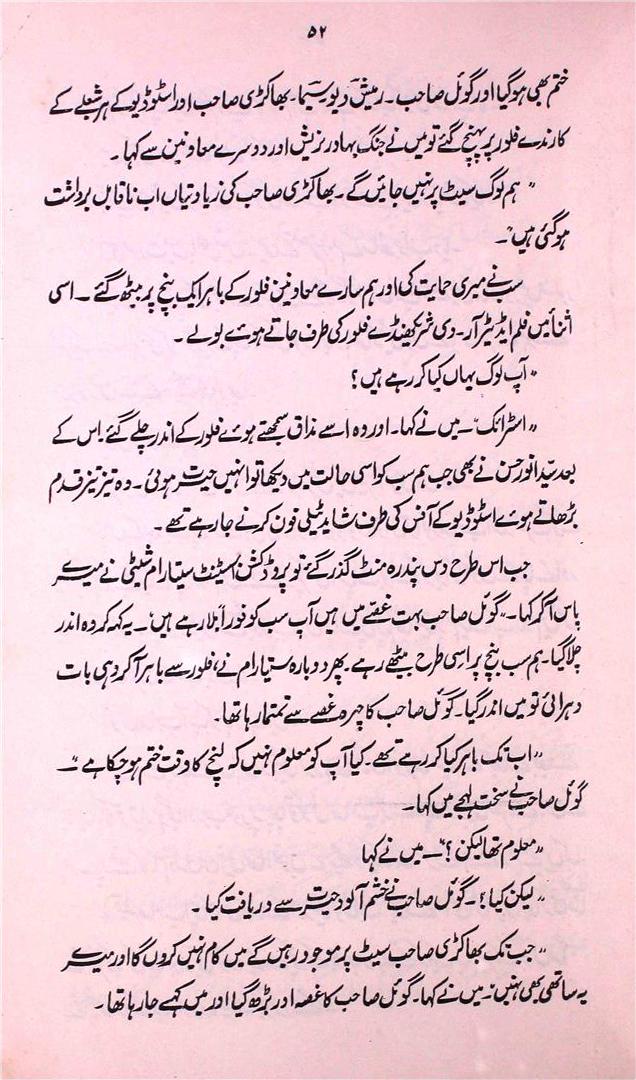 ۵۲
ختم بھی ہوگیا اور گوئل صاحب ۔ رمیش دیو سیما۔ بھاکڑی صاحب اور اسٹوڈیو کے ہر شعبے کے
کارندے فلور پر پہنچ گئے تو میں نے جنگ بہادر نریش اور دوسرے معاونین سے کہا ۔
" ہم لوگ سیٹ پر نہیں جائیں گے ۔ بھاکڑی صاحب کی زیادتیاں اب ناقابل برداشت
ہوگئی ہیں"۔
سب نے میری حمایت کی اور ہم سارے معاونین فلور کے باہر ایک بنچ پر بیٹھ گئے ۔ اسی
اثنا میں فلم ایڈیٹر آر۔ دی شریکھنڈے فلور کی طرف جاتے ہوئے بولے ۔
" آپ لوگ یہاں کیا کر رہے ہیں ؟
" اسٹرائک"۔ میں نے کہا۔ اور وہ اسے مذاق سمجھتے ہوئے فلور کے اندر چلے گئے ۔ اس کے
بعد سید انور حسن نے بھی جب ہم سب کو اسی حالت میں دیکھا تو انہیں حیرت ہوئی ۔ وہ تیز تیز قدم
بڑھاتے ہوئے اسٹوڈیو کے آفس کی طرف شاید ٹیلی فون کرنے جا رہے تھے ۔
جب اس طرح دس پندرہ منٹ گذر گئے تو پروڈکشن اسٹینٹ سیتا رام شیٹی نے میرے
پاس آکر کہا ۔ "گوئل صاحب بہت غصے میں ہیں آپ سب کو فوراً بلا رہے ہیں"۔ یہ کہہ کر وہ اندر
چلا گیا۔ ہم سب بنچ پر اسی طرح بیٹھے رہے ۔ پھر دوبارہ ستیارام نے، فلور سے باہر آکر وہی بات
دہرائی تو میں اندر گیا۔ گوئل صاحب کا چہرہ غصے سے تمتما رہا تھا۔
"اب تک باہر کیا کر رہے تھے ۔ کیا آپ کو معلوم نہیں کہ لنچ کا وقت ختم ہو چکا ہے "۔
گوئل صاحب نے سخت لہجے میں کہا۔
"معلوم تھا لیکن ؟"۔ میں نے کہا
"لیکن کیا ؟ ۔ گوئل صاحب نے خشم آلود حیرت سے دریافت کیا ۔
"جب تک بھاکڑی صاحب سیٹ پر موجود رہیں گے میں کام نہیں کروں گا اور میرے
یہ ساتھی بھی نہیں"۔ میں نے کہا۔ گوئل صاحب کا غصہ اور بڑھ گیا اور میں کہے جا رہا تھا ۔